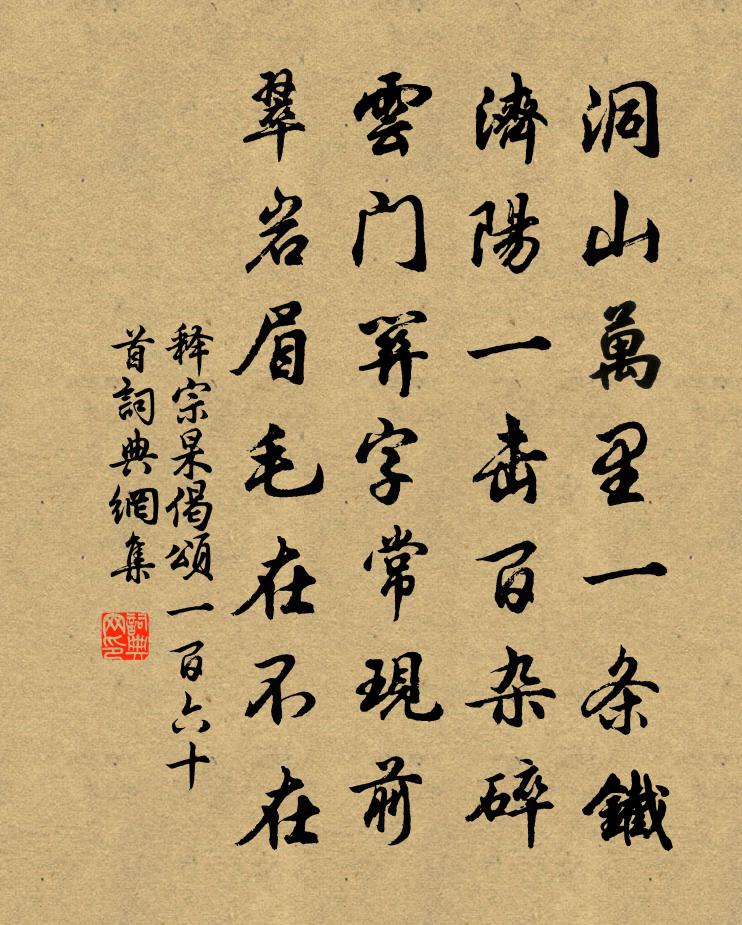 洞山萬里一条鐵
濟陽一击百杂碎
雲门關字常現前
翠岩眉毛在不在
释宗杲偈頌一百六十
首詞典網集
詞典
网印